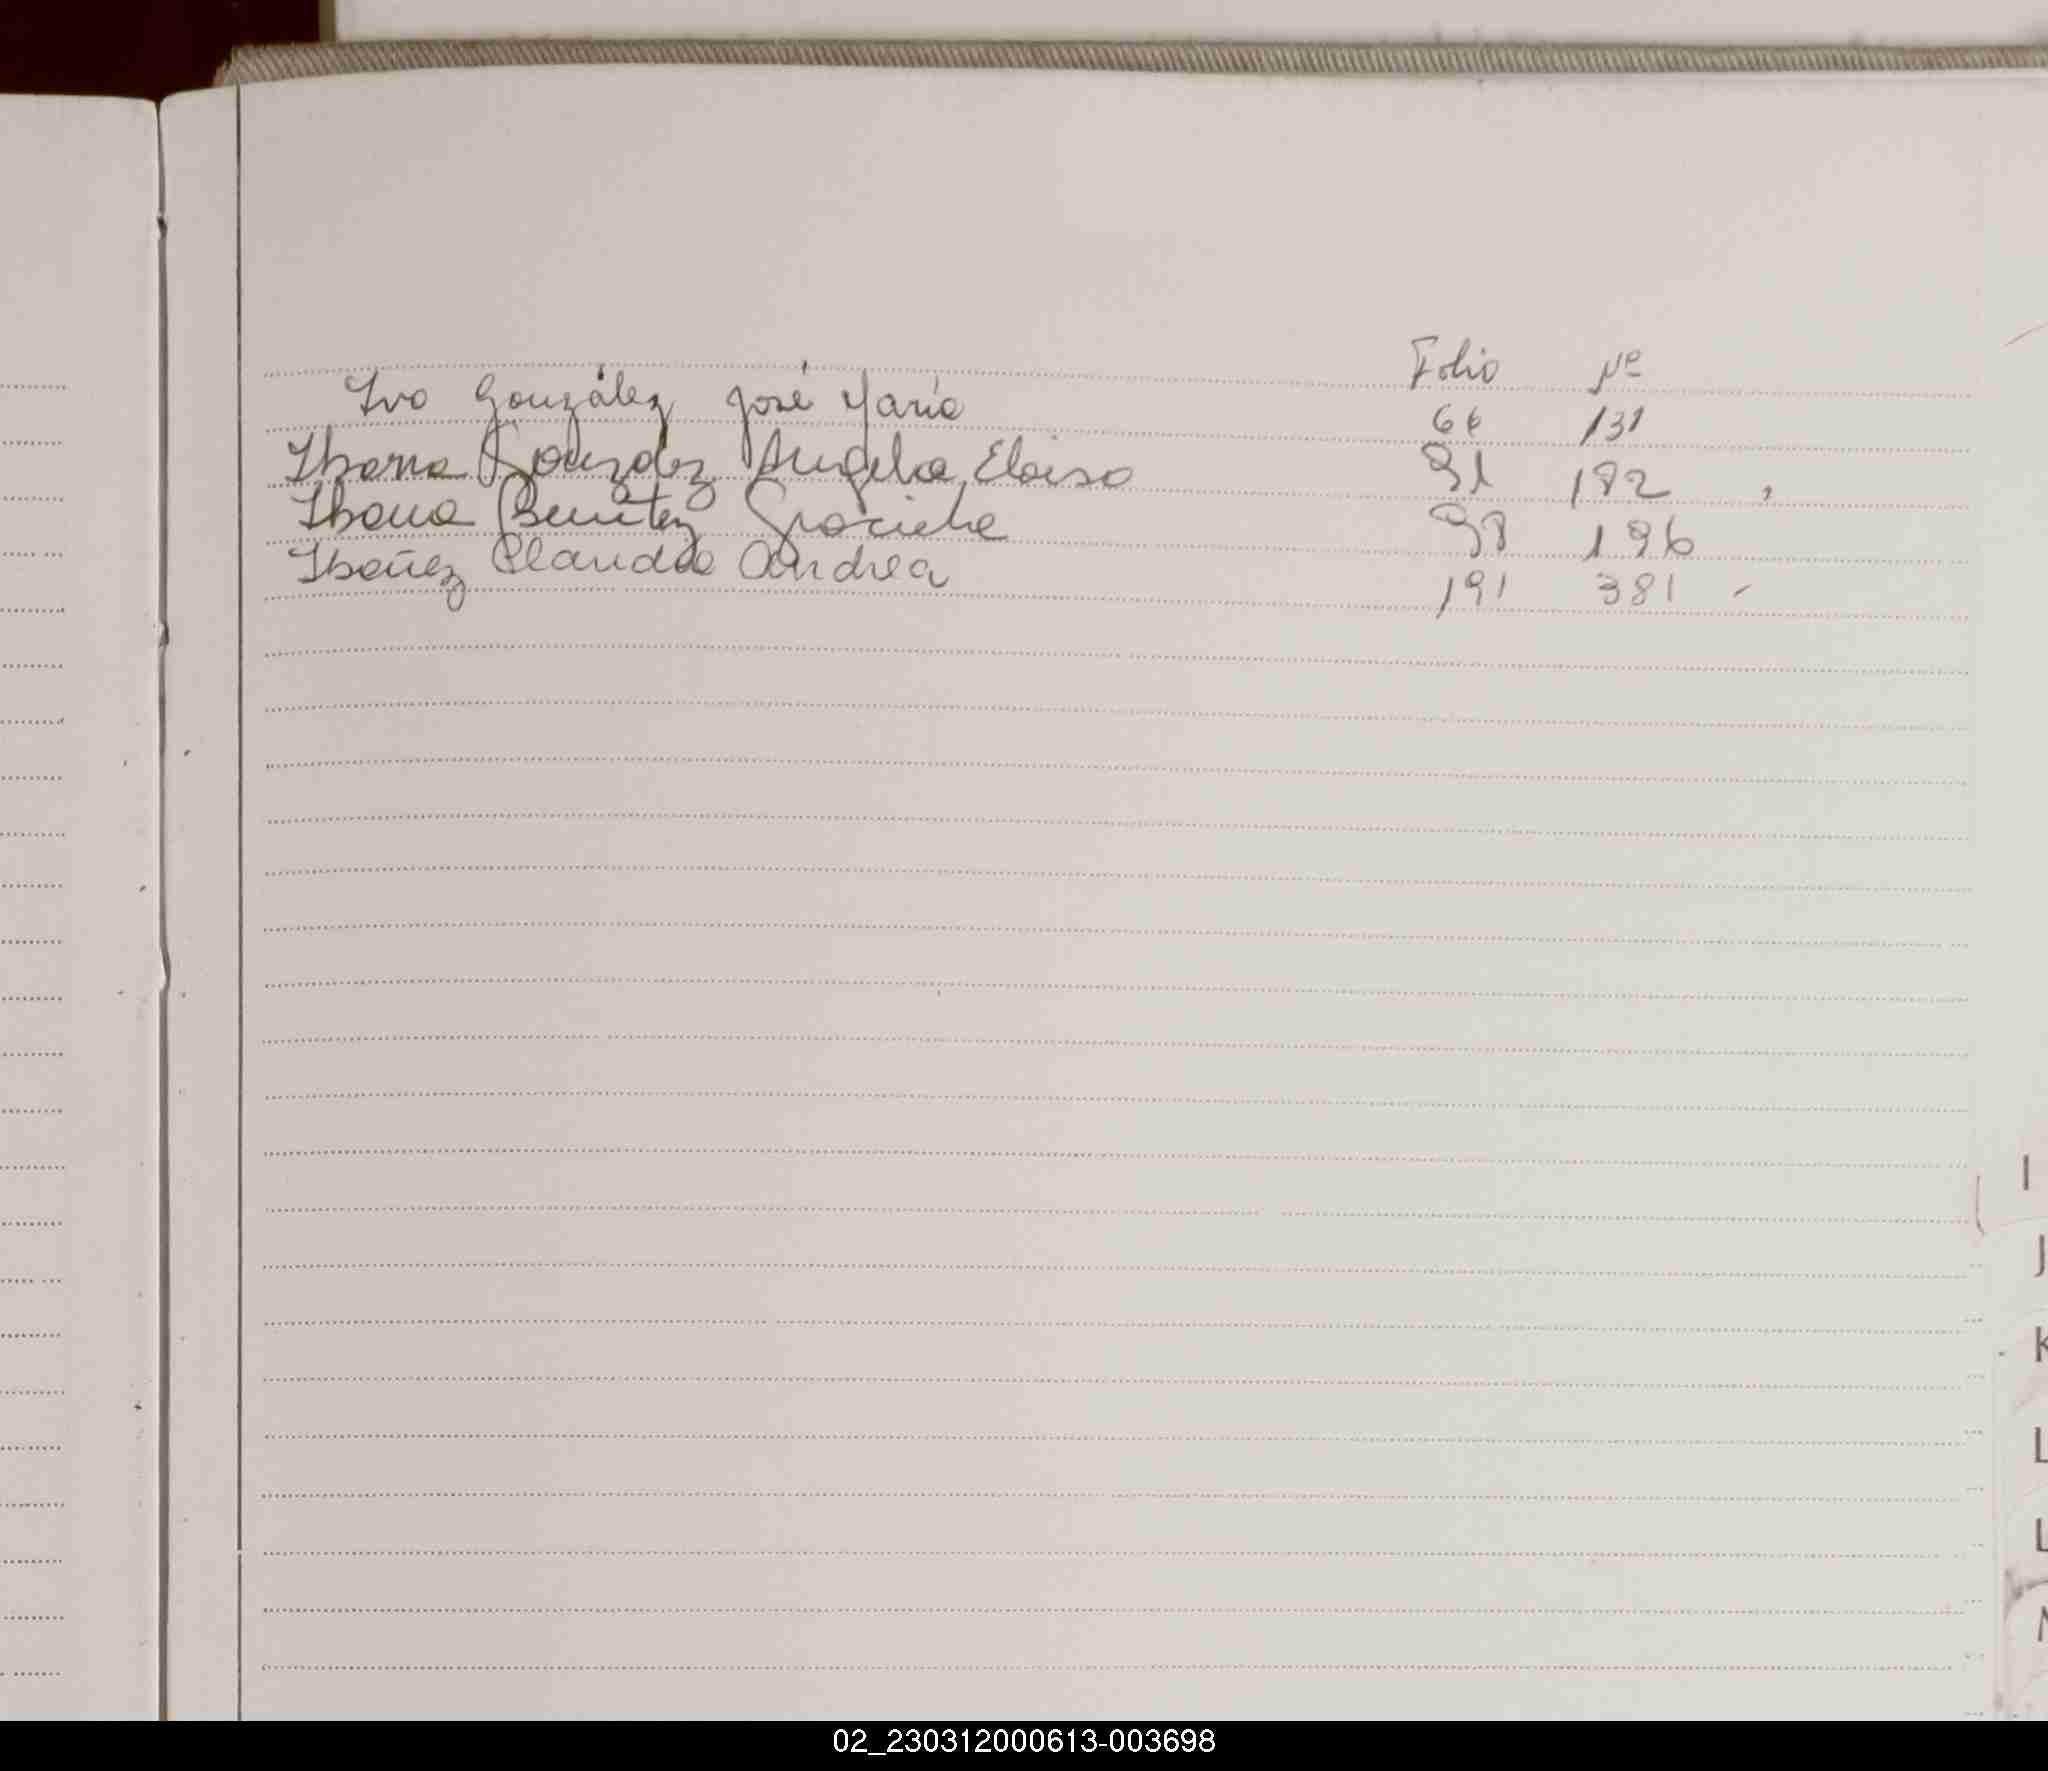 Folio Nº
Ivo González José María 66 131
Ibarra González Angela Eloisa 91 182
Ibarra Benítez Graciela 98 196
Ibañez Claudia Andrea 191 381
I
J
K
L
L
M
02_230312000613-003698